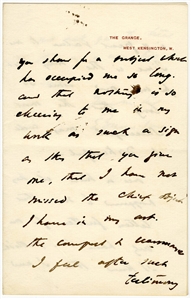 THE GRANGE,
WEST KENSINGTON, W.
you show for a subject which
has occupied me so long.
and that nothing is so
cheering to me in my
work as such a sign
as this that you give
me, that I have not
missed the chief
I have in my art.
the comfort &
I feel after such
testimony